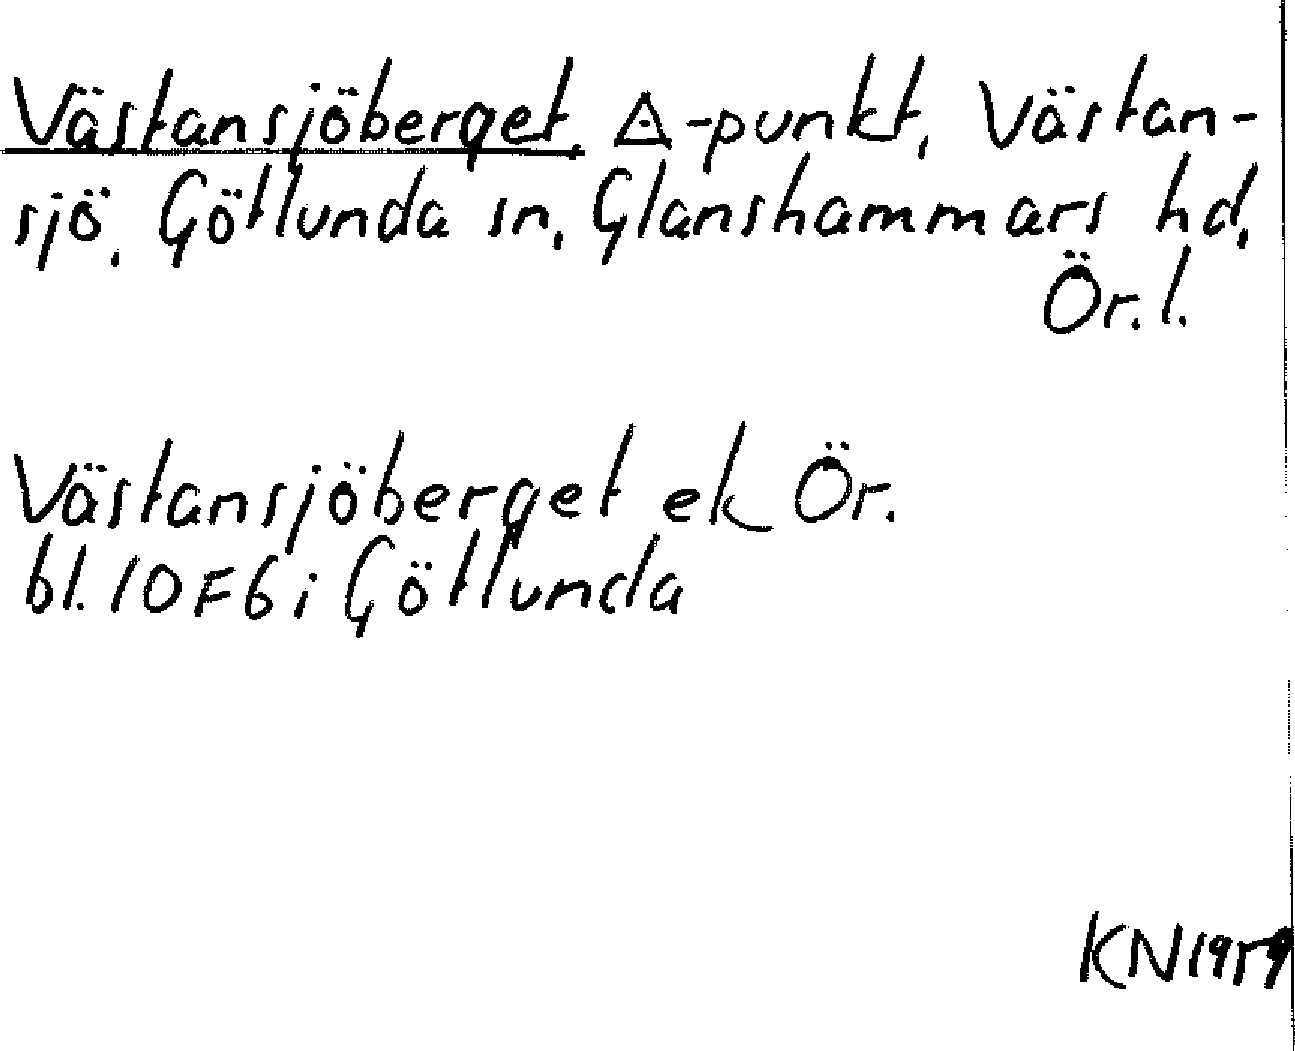 Västansjöberget, △-punkt, Västan-
sjö, Götlunda sn, Glanshammars hd,
Ör. l.
Västansjöberget ek Ör.
bl. 10F6 i Götlunda
KN1959